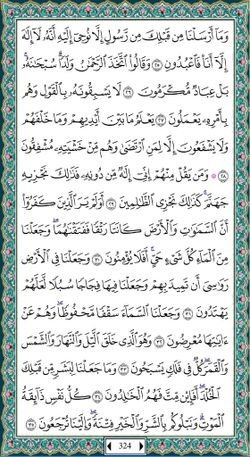 وَمَآ أَرْسَلْنَا مِن قَبْلِكَ مِن رَّسُولٍ إِلَّا نُوحِىٓ إِلَيْهِ أَنَّهُۥ لَآ إِلَٰهَ
إِلَّآ أَنَا۠ فَٱعْبُدُونِ ٢٥ وَقَالُوا۟ ٱتَّخَذَ ٱلرَّحْمَٰنُ وَلَدًا ۗ سُبْحَٰنَهُۥ ۚ
بَلْ عِبَادٌ مُّكْرَمُونَ ٢٦ لَا يَسْبِقُونَهُۥ بِٱلْقَوْلِ وَهُم
بِأَمْرِهِۦ يَعْمَلُونَ ٢٧ يَعْلَمُ مَا بَيْنَ أَيْدِيهِمْ وَمَا خَلْفَهُمْ
وَلَا يَشْفَعُونَ إِلَّا لِمَنِ ٱرْتَضَىٰ وَهُم مِّنْ خَشْيَتِهِۦ مُشْفِقُونَ
٢٨ وَمَن يَقُلْ مِنْهُمْ إِنِّىٓ إِلَٰهٌ مِّن دُونِهِۦ فَذَٰلِكَ نَجْزِيهِ
جَهَنَّمَ ۚ كَذَٰلِكَ نَجْزِى ٱلظَّٰلِمِينَ ٢٩ أَوَلَمْ يَرَ ٱلَّذِينَ كَفَرُوٓا۟
أَنَّ ٱلسَّمَٰوَٰتِ وَٱلْأَرْضَ كَانَتَا رَتْقًا فَفَتَقْنَٰهُمَا ۖ وَجَعَلْنَا
مِنَ ٱلْمَآءِ كُلَّ شَىْءٍ حَىٍّ ۖ أَفَلَا يُؤْمِنُونَ ٣٠ وَجَعَلْنَا فِى ٱلْأَرْضِ
رَوَٰسِىَ أَن تَمِيدَ بِهِمْ وَجَعَلْنَا فِيهَا فِجَاجًا سُبُلًا لَّعَلَّهُمْ
يَهْتَدُونَ ٣١ وَجَعَلْنَا ٱلسَّمَآءَ سَقْفًا مَّحْفُوظًا ۖ وَهُمْ عَنْ
ءَايَٰتِهَا مُعْرِضُونَ ٣٢ وَهُوَ ٱلَّذِى خَلَقَ ٱلَّيْلَ وَٱلنَّهَارَ وَٱلشَّمْسَ
وَٱلْقَمَرَ ۖ كُلٌّ فِى فَلَكٍ يَسْبَحُونَ ٣٣ وَمَا جَعَلْنَا لِبَشَرٍ مِّن قَبْلِكَ
ٱلْخُلْدَ ۖ أَفَإِي۟ن مِّتَّ فَهُمُ ٱلْخَٰلِدُونَ ٣٤ كُلُّ نَفْسٍ ذَآئِقَةُ
ٱلْمَوْتِ ۗ وَنَبْلُوكُم بِٱلشَّرِّ وَٱلْخَيْرِ فِتْنَةً ۖ وَإِلَيْنَا تُرْجَعُونَ ٣٥
324